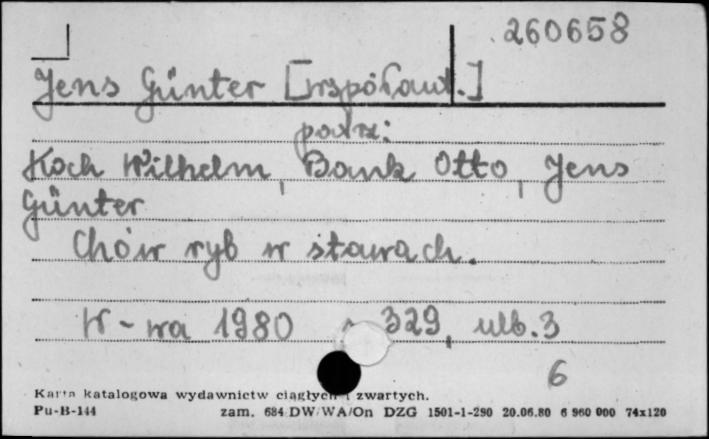 260658
Jens Günter [współaut.]
patrz:
Koch Wilhelm, Bank Otto, Jens
Günter
Chów ryb w stawach.
W-wa 1980 s. 329, nlb. 3
6
Karta katalogowa wydawnictw ciągłych i zwartych.
Pu-B-144 zam. 684 DW/WA/On DZG 1501-1-290 20.06.80 6 960 000 74x120